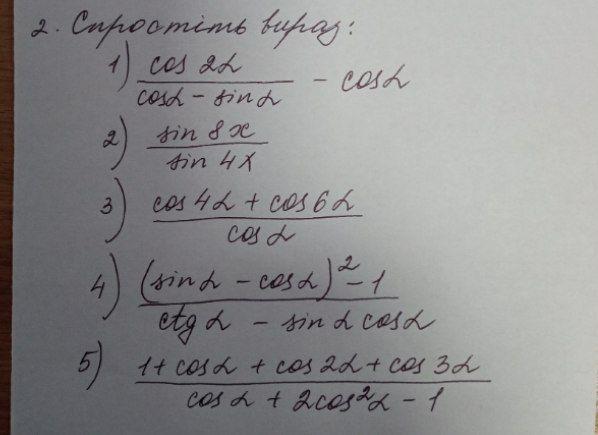 2. Спростіть вираз:
1) cos 2α / (cosα - sinα) - cosα
2) sin 8x / sin 4x
3) (cos 4α + cos 6α) / cosα
4) ((sinα - cosα)² - 1) / (ctgα - sinα cosα)
5) (1 + cosα + cos 2α + cos 3α) / (cosα + 2cos²α - 1)